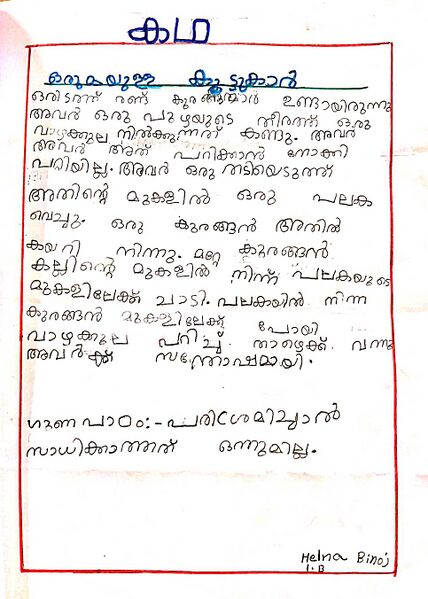 കഥ
ഒരുമയുള്ള കൂട്ടുകാർ
ഒരിടത്ത് രണ്ട് കുരങ്ങന്മാർ ഉണ്ടായിരുന്നു
അവർ ഒരു പുഴയുടെ തീരത്ത് ഒരു
വാഴക്കുല നിൽക്കുന്നത് കണ്ടു. അവർ
അവർ അത് പറിക്കാൻ നോക്കി
പറ്റിയില്ല. അവർ ഒരു തടിയെടുത്ത്
അതിന്റെ മുകളിൽ ഒരു പലക
വെച്ചു. ഒരു കുരങ്ങൻ അതിൽ
കയറി നിന്നു. മറ്റേ കുരങ്ങൻ
കല്ലിന്റെ മുകളിൽ നിന്ന് പലകയുടെ
മുകളിലേക്ക് ചാടി. പലകയിൽ നിന്ന
കുരങ്ങൻ മുകളിലേക്ക് പോയി
വാഴക്കുല പറിച്ച് താഴെക്ക് വന്നു
അവർക്ക് സന്തോഷമായി.
ഗുണപാഠം:- പരിശ്രമിച്ചാൽ
സാധിക്കാത്തത് ഒന്നുമില്ല.
Helna Binoj
1.B